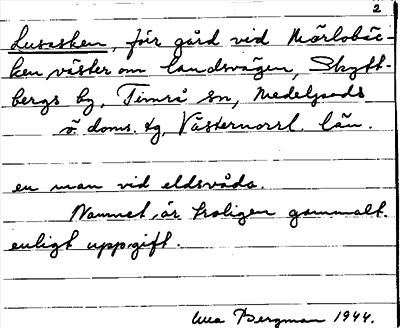 2
Lusasken, för gård vid Märlobäc-
ken väster om landsvägen, Skytt-
bergs by, Timrå sn, Medelpads
ö. doms. tg, Västernorrl. län.
en man vid eldsvåda.
Namnet är troligen gammalt
enligt uppgift.
Bergman 1944.